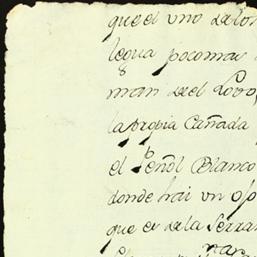 que el uno de los
legua poco mas
man de el Lobo,
la propia Cañada
el Peñol Blanco
donde hai un op
que es de la Serra